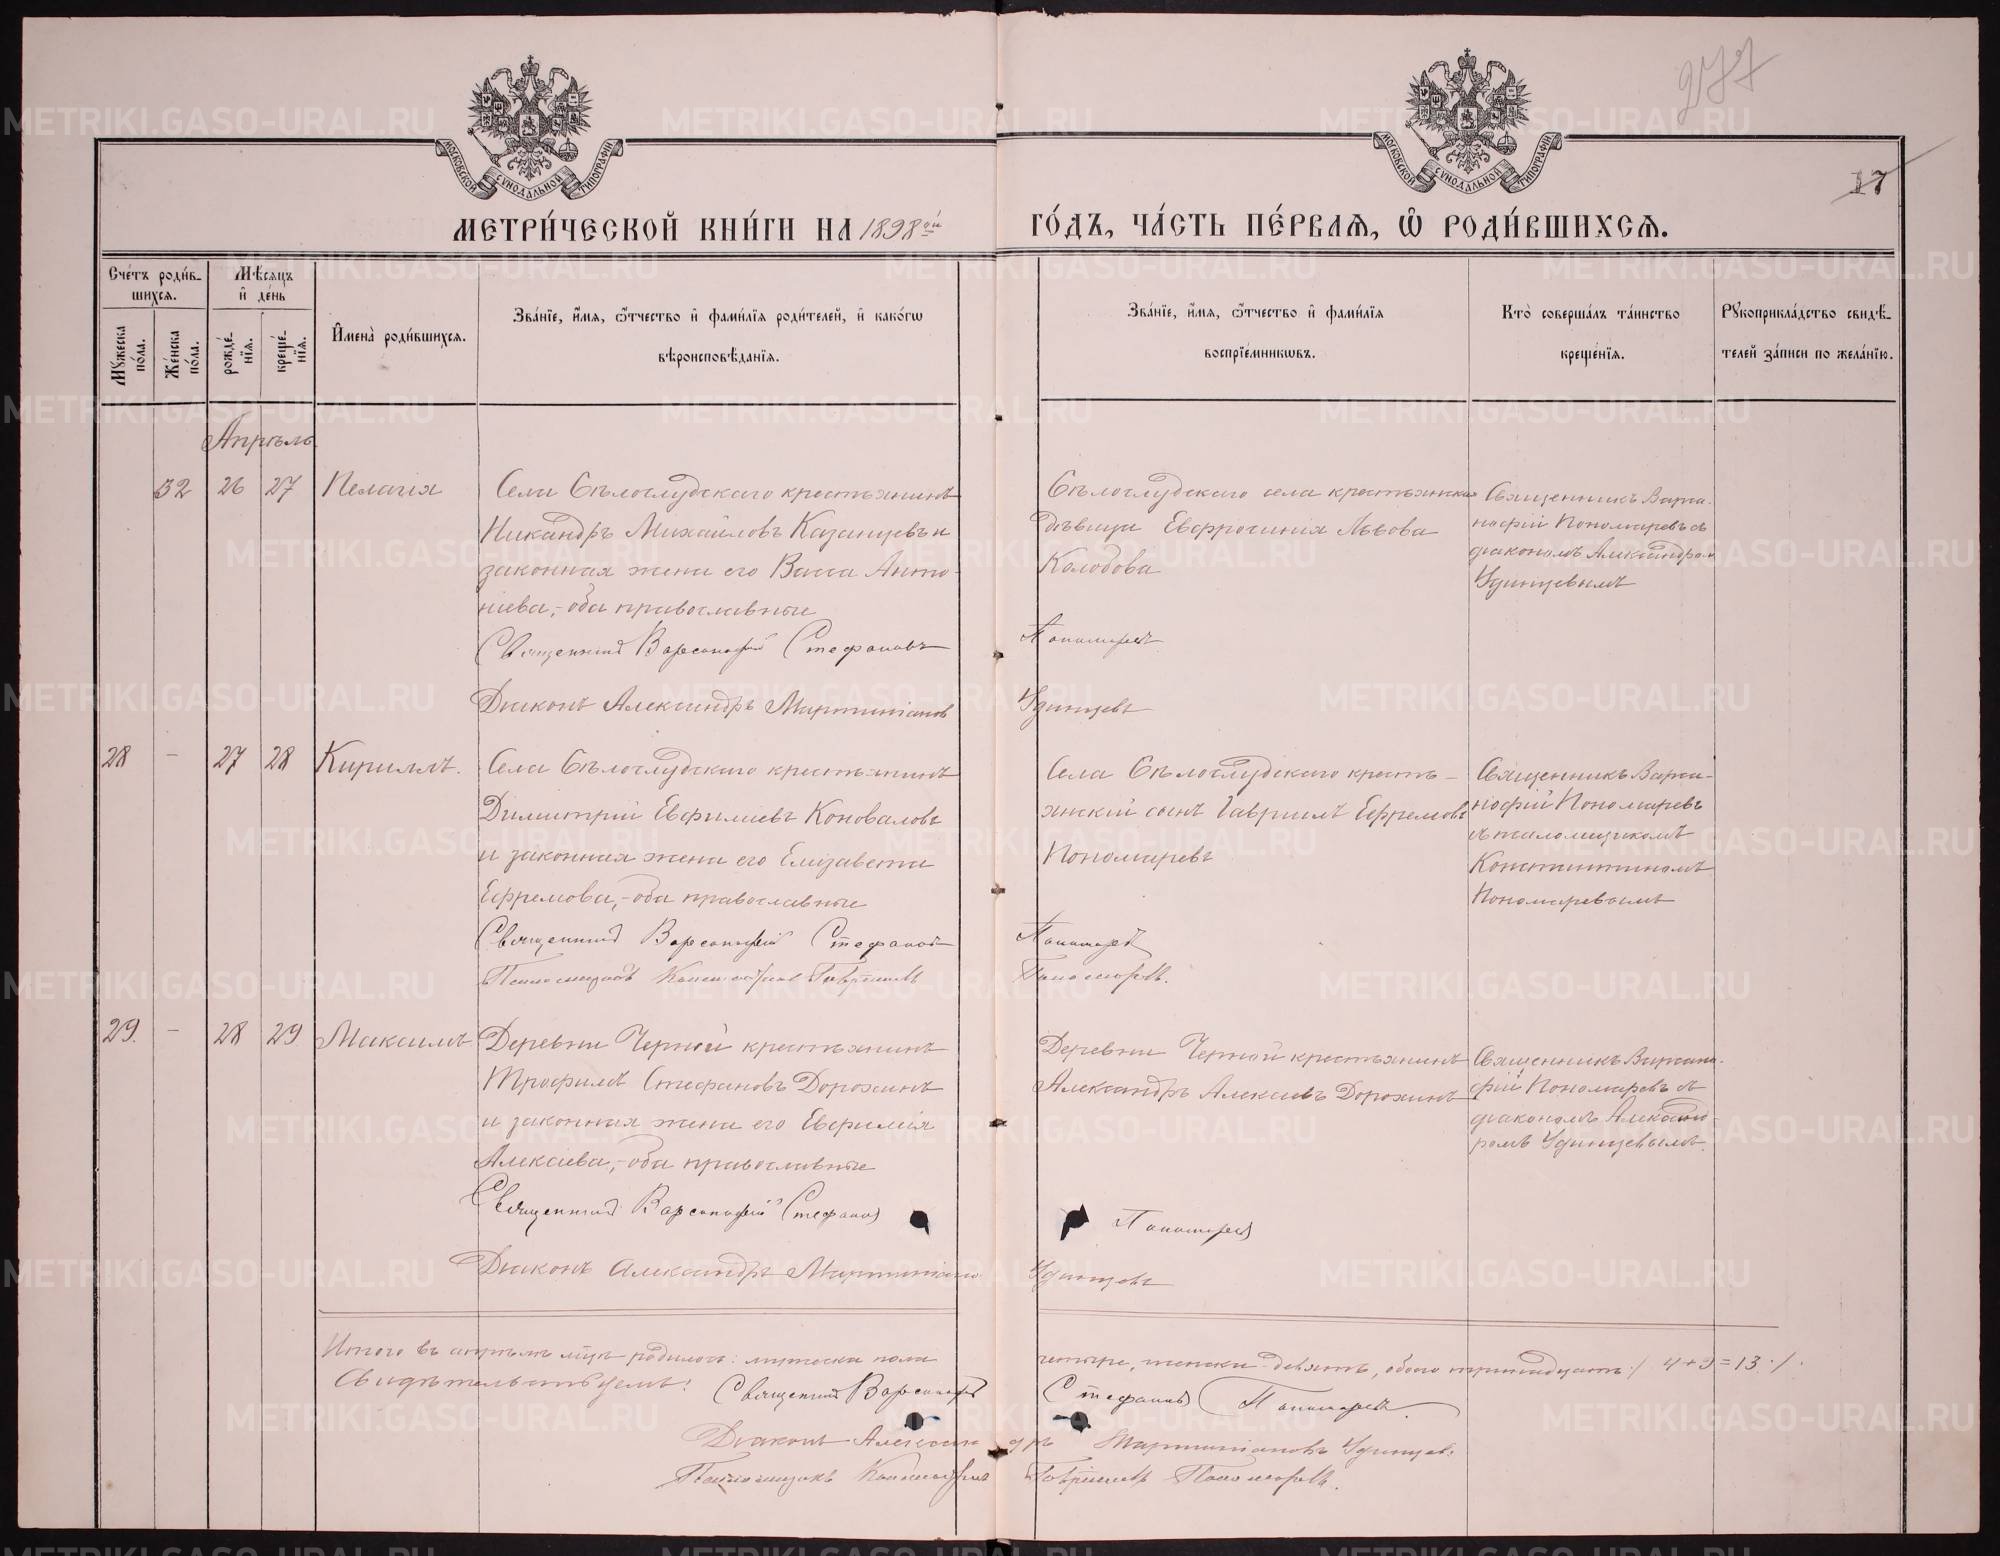 277
17
МОСКОВСКОЙ СѴНОДАЛЬНОЙ ТИПОГРАФІИ
МОСКОВСКОЙ СѴНОДАЛЬНОЙ ТИПОГРАФІИ
МЕТРИ́ЧЕСКОЙ КНИ́ГИ НА 1898ой ГО́ДЪ, ЧА́СТЬ ПЕ́РВАѦ, Ѡ҆ РОДИ́ВШИХСѦ.
Сче́тъ роди́в-
шихсѧ.
Мꙋ́жеска по́ла.
Же́нска по́ла.
Мѣ́сѧцъ
и҆ де́нь
рожде́-
нїѧ.
креще́-
нїѧ.
И҆мена̀ роди́вшихсѧ.
Зва́нїе, и҆́мѧ, ѻ҆́тчество и҆ фами́лїѧ роди́телей, и҆ како́гѡ
вѣроисповѣ́данїѧ.
Зва́нїе, и҆́мѧ, ѻ҆́тчество и҆ фами́лїѧ
воспрїе́мникѡвъ.
Кто̀ соверша́лъ та́инство
креще́нїѧ.
Рꙋкоприкла́дство свидѣ́-
телей за́писи по жела́нїю.
Апрѣль
32 26 27 Пелагія
Села Бѣлослудскаго крестьянинъ
Никандръ Михайловъ Казанцевъ и
законная жена его Васса Анто-
ніева,-оба православные
Священникъ Варсонофій Стефановъ Пономаревъ
Діаконъ Александръ Мартиніановъ Удинцевъ
Бѣлослудскаго села крестьянская
дѣвица Евфросинія Львова
Колобова
Священникъ Варса-
нофій Пономаревъ съ
діакономъ Александромъ
Удинцевымъ
28 - 27 28 Кириллъ.
Села Бѣлослудскаго крестьянинъ
Димитрій Евфиміевъ Коноваловъ
и законная жена его Елизавета
Ефремова,-оба православные
Священникъ Варсонофій Стефановъ Пономаревъ
Псаломщикъ Константинъ Гавріиловъ Пономаревъ.
Села Бѣлослудскаго кресть-
янскій сынъ Гавріилъ Ефремовъ
Пономаревъ
Священникъ Варса-
нофій Пономаревъ
съ псаломщикомъ
Константиномъ
Пономаревымъ
29. - 28 29 Максимъ
Деревни Черной крестьянинъ
Трофимъ Стефановъ Дорохинъ
и законная жена его Евфимія
Алексіева,-оба православные
Священникъ Варсонофій Стефановъ Пономаревъ
Діаконъ Александръ Мартиніановъ Удинцевъ
Деревни Черной крестьянинъ
Александръ Алексіевъ Дорохинъ
Священникъ Варсано-
фій Пономаревъ съ
діакономъ Александ-
ромъ Удинцевымъ.
Итого въ апрѣлѣ мцѣ родилось: мужеска пола четыре, женска девять, обоего тринадцать / 4+9=13 /.
Свидѣтельствуемъ: Священникъ Варсонофій Стефановъ Пономаревъ.
Діаконъ Александръ Мартиніановъ Удинцевъ.
Псаломщикъ Константинъ Гавріиловъ Пономаревъ.